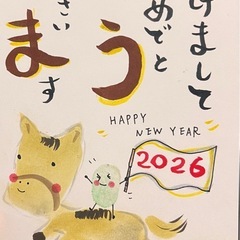 けまして
めでと
う
さい
ます
HAPPY
NEW YEAR
2026